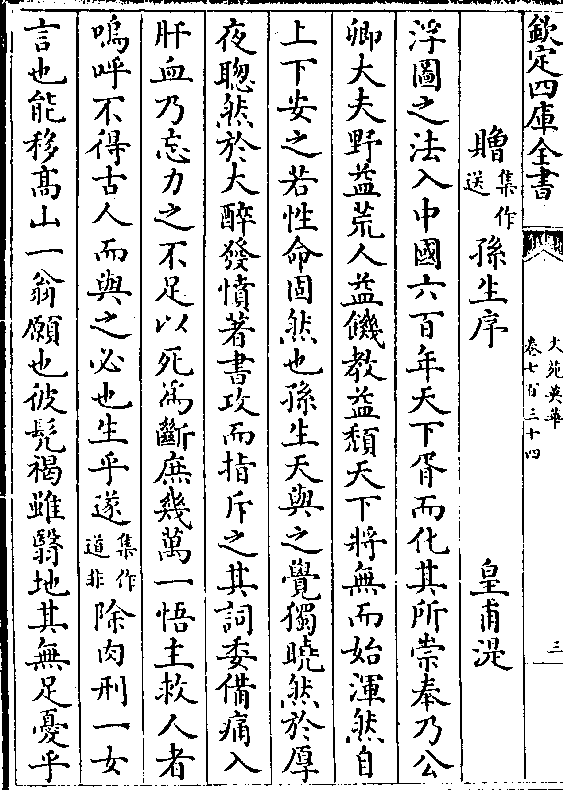 欽定四庫全書
文苑英華
卷七百三十四
三
贈集作送孫生序 皇甫湜
浮圖之法入中國六百年天下胥而化其所崇奉乃公
卿大夫野益荒人益饑教益頽天下將無而始渾然自
上下安之若性命固然也孫生天與之覺獨曉然於厚
夜聦然於大醉發憤著書攻而指斥之其詞委備痛入
肝血乃忘力之不足以死為斷庶幾萬一悟主救人者
嗚呼不得古人而與之必也生乎遂集作道非除肉刑一女
言也能移髙山一翁願也彼髠褐雖翳地其無足憂乎